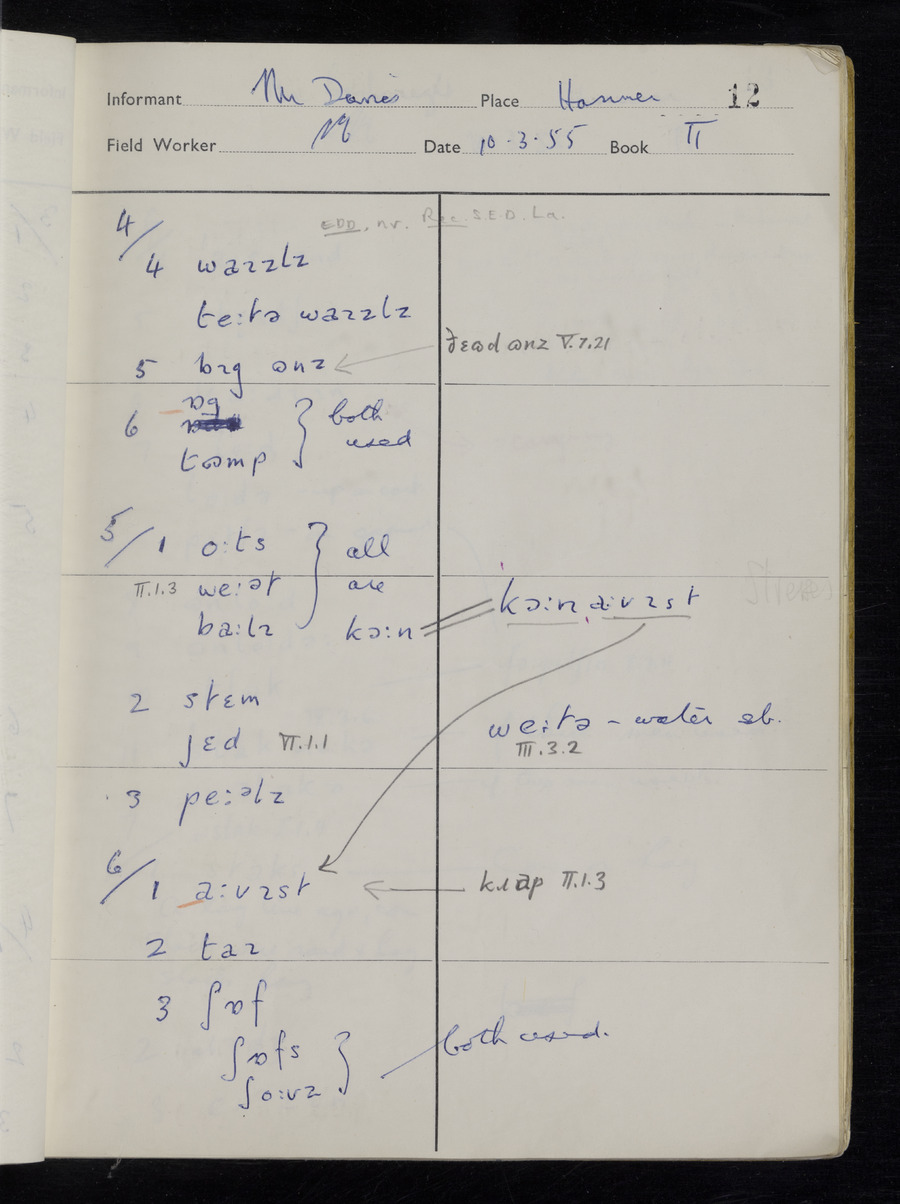 Informant Mr Davies Place Hanmer 12
Field Worker Date 10.3.55 Book II
EDD, nr. Rec. S.E.D. La.
4/
4 waɪzlz
te:tə waɪzlz
5 bɪg ɷnz
ðeɷd ɷnz V.7.21
6 ɒg } both
tɷmp used
5/1 o:ts } all
II.1.3 we:ət are
ba:lɪ kɔ:n
kɔ:n a:vɪst
2 stɛm
jɛd VI.1.1
we:tə – water sb.
III.3.2
3 pe:əlz
6/1 a:vɪst
krɒp II.1.3
2 taɪ
3 ʃɒf
ʃɒfs } both used.
ʃo:vz